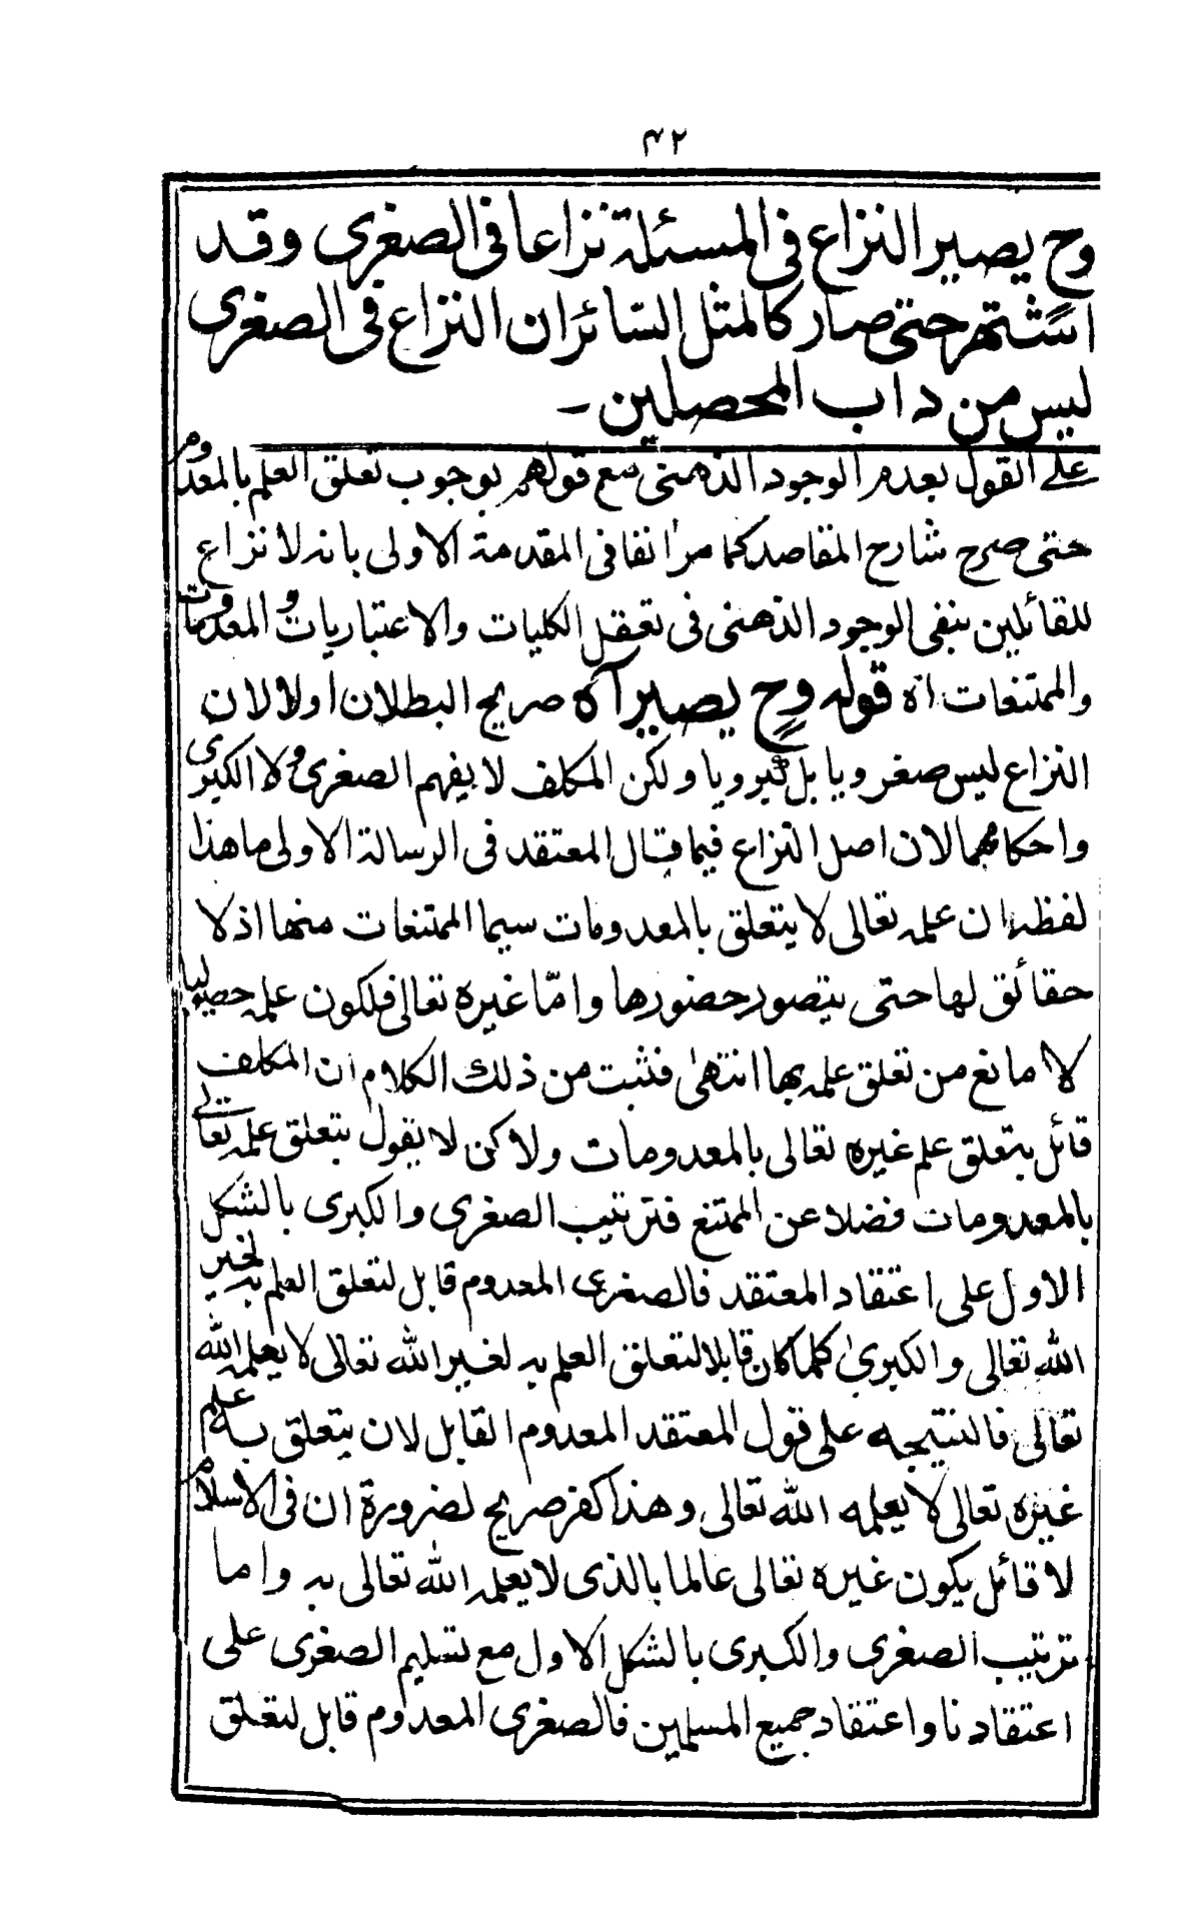 ۴۲
وح يصير النزاع فى المسئلة نزاعا فى الصغرى وقد
اشتهر حتى صار كالمثل السّائر ان النزاع فى الصغرى
ليس من داب المحصلين ـ
على القول بعدم الوجود الذهنى مع قولهم بوجوب تعلق العلم بالمعدوم
حتى صرح شارح المقاصد كما مر انفا فى المقدمة الاولى بانه لا نزاع
للقائلين بنفى الوجود الذهنى فى تعقل الكليات والاعتباريات والمعدومات
والممتنعات اه قوله وح يصير آه صريح البطلان اولا لان
النزاع ليس صغرويا بل كبرويا ولكن المكلف لا يفهم الصغرى ولا الكبرى
واحكامهما لان اصل النزاع فيما قال المعتقد فى الرسالة الاولى ما هذا
لفظه ان علمه تعالى لا يتعلق بالمعدومات سيما الممتنعات منها اذ لا
حقائق لها حتى يتصور حضورها وامّا غيره تعالى فلكون علمه حصوليا
لا مانع من تعلق علمه بها انتهىٰ فثبت من ذلك الكلام ان المكلف
قائل بتعلق علم غيره تعالى بالمعدومات ولاكن لا يقول بتعلق علمه تعالى
بالمعدومات فضلا عن الممتنع فترتيب الصغرى والكبرى بالشكل
الاول على اعتقاد المعتقد فالصغرى المعدوم قابل لتعلق العلم به لغير
الله تعالى والكبرىٰ كلما كان قابلا لتعلق العلم به لغير الله تعالى لا يعلمه الله
تعالى فالنتيجه على قول المعتقد المعدوم القابل لان يتعلق به علم
غيره تعالى لا يعلمه الله تعالى وهذا كفر صريح لضرورة ان فى الاسلام
لا قائل يكون غيره تعالى عالما بالذى لا يعلمه الله تعالى به واما
ترتيب الصغرى والكبرى بالشكل الاول مع تسليم الصغرى على
اعتقادنا واعتقاد جميع المسلمين فالصغرى المعدوم قابل لتعلق